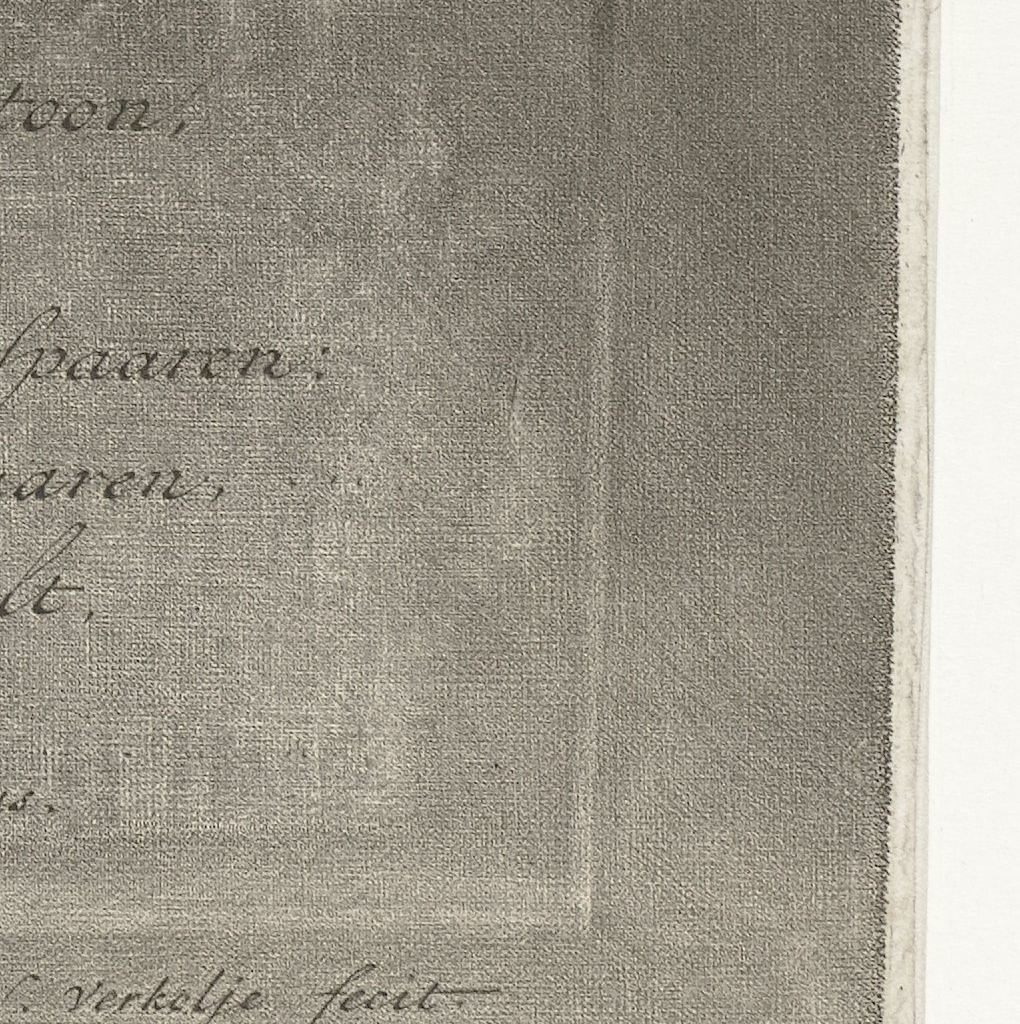 toon,
spaaren:
aren,
lt,
us.
verkolje fecit.